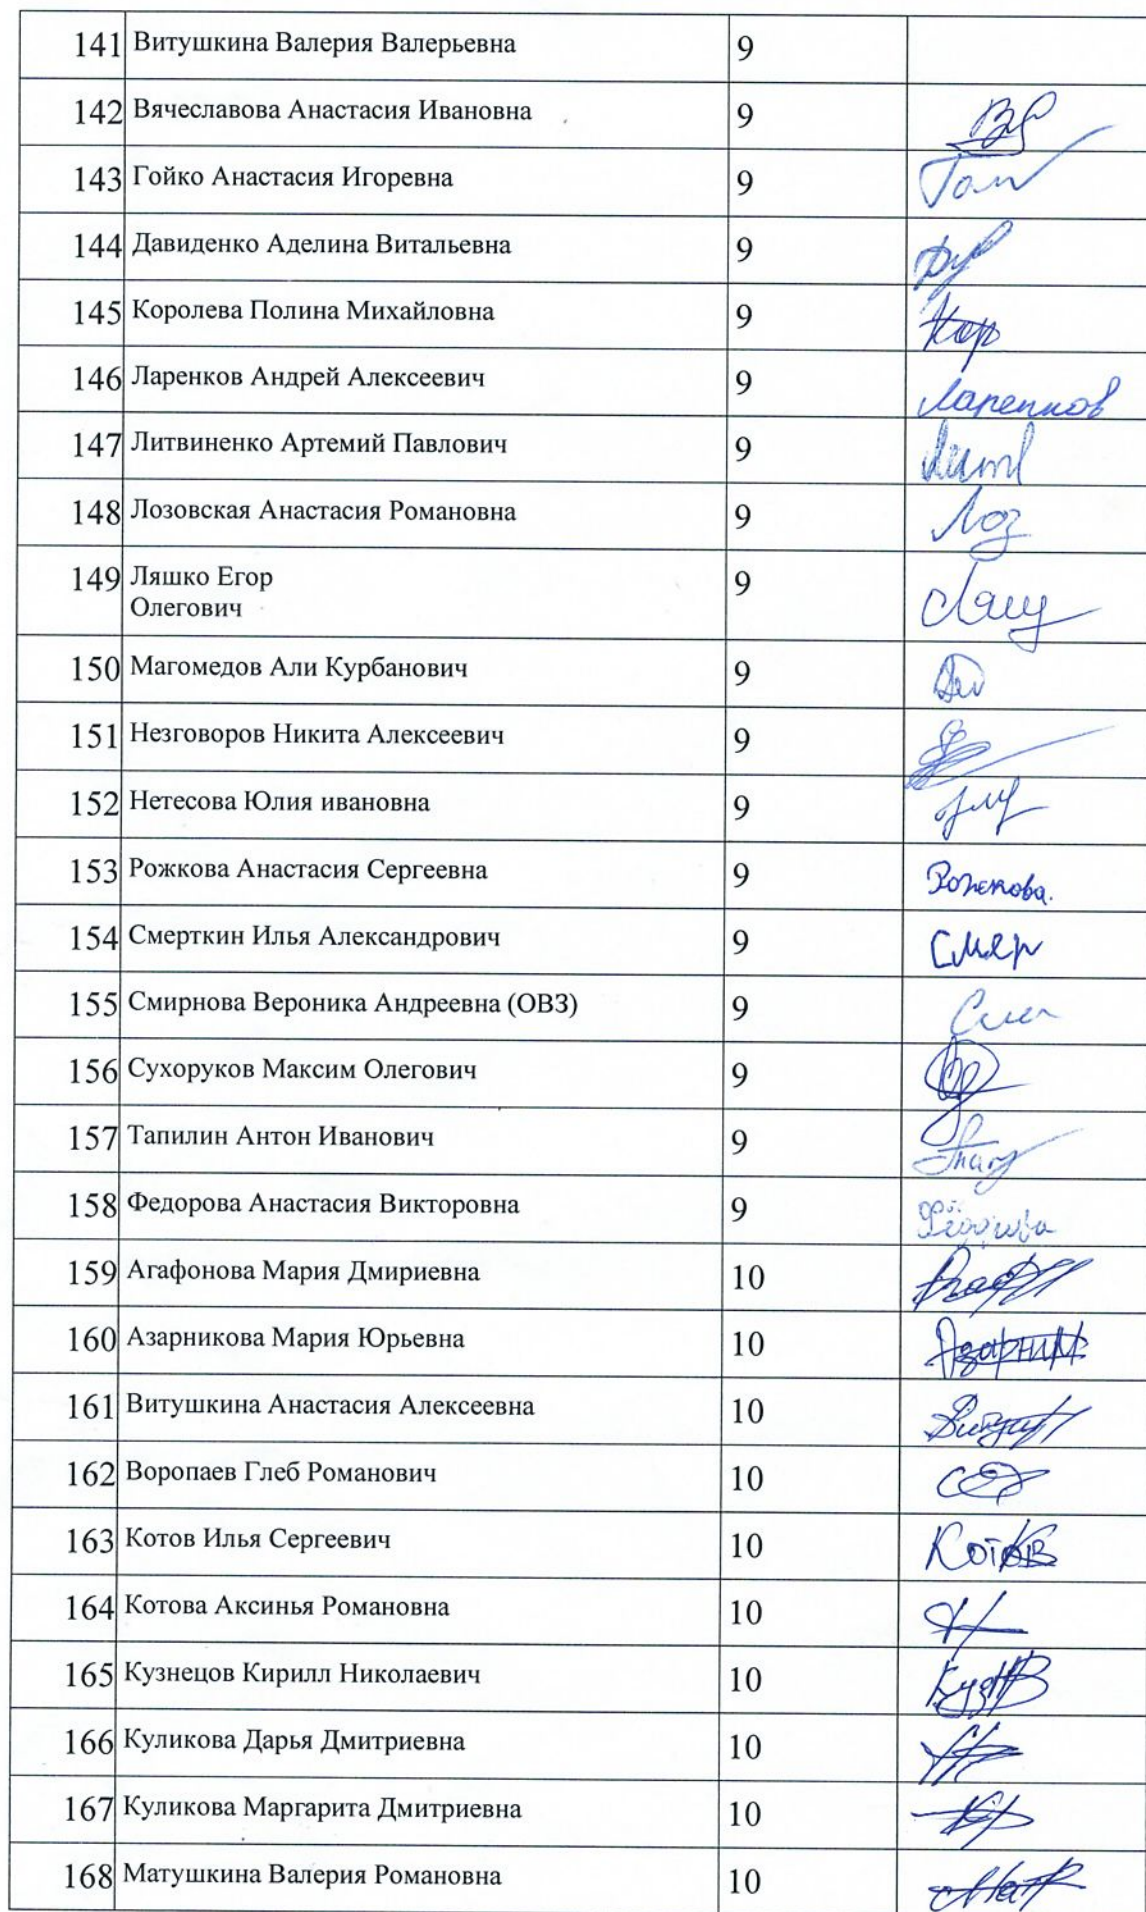 141 Витушкина Валерия Валерьевна 9
142 Вячеславова Анастасия Ивановна 9
143 Гойко Анастасия Игоревна 9
144 Давиденко Аделина Витальевна 9
145 Королева Полина Михайловна 9 Кор
146 Ларенков Андрей Алексеевич 9 Ларенков
147 Литвиненко Артемий Павлович 9 Литв
148 Лозовская Анастасия Романовна 9 Лоз
149 Ляшко Егор 9 Ляш
Олегович
150 Магомедов Али Курбанович 9
151 Незговоров Никита Алексеевич 9
152 Нетесова Юлия ивановна 9
153 Рожкова Анастасия Сергеевна 9 Рожкова.
154 Смерткин Илья Александрович 9 Смер
155 Смирнова Вероника Андреевна (ОВЗ) 9
156 Сухоруков Максим Олегович 9
157 Тапилин Антон Иванович 9
158 Федорова Анастасия Викторовна 9 Фёдорова
159 Агафонова Мария Дмириевна 10
160 Азарникова Мария Юрьевна 10
161 Витушкина Анастасия Алексеевна 10
162 Воропаев Глеб Романович 10
163 Котов Илья Сергеевич 10 Котов
164 Котова Аксинья Романовна 10
165 Кузнецов Кирилл Николаевич 10
166 Куликова Дарья Дмитриевна 10
167 Куликова Маргарита Дмитриевна 10
168 Матушкина Валерия Романовна 10